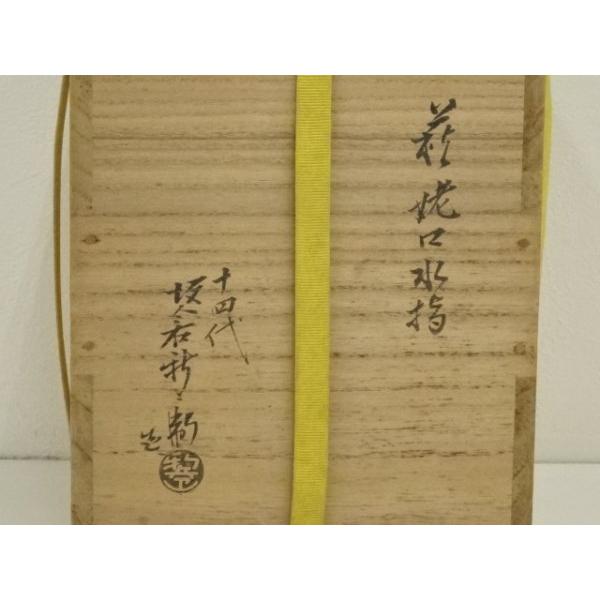 萩姥口水指
十四代
坂倉新兵衛
造